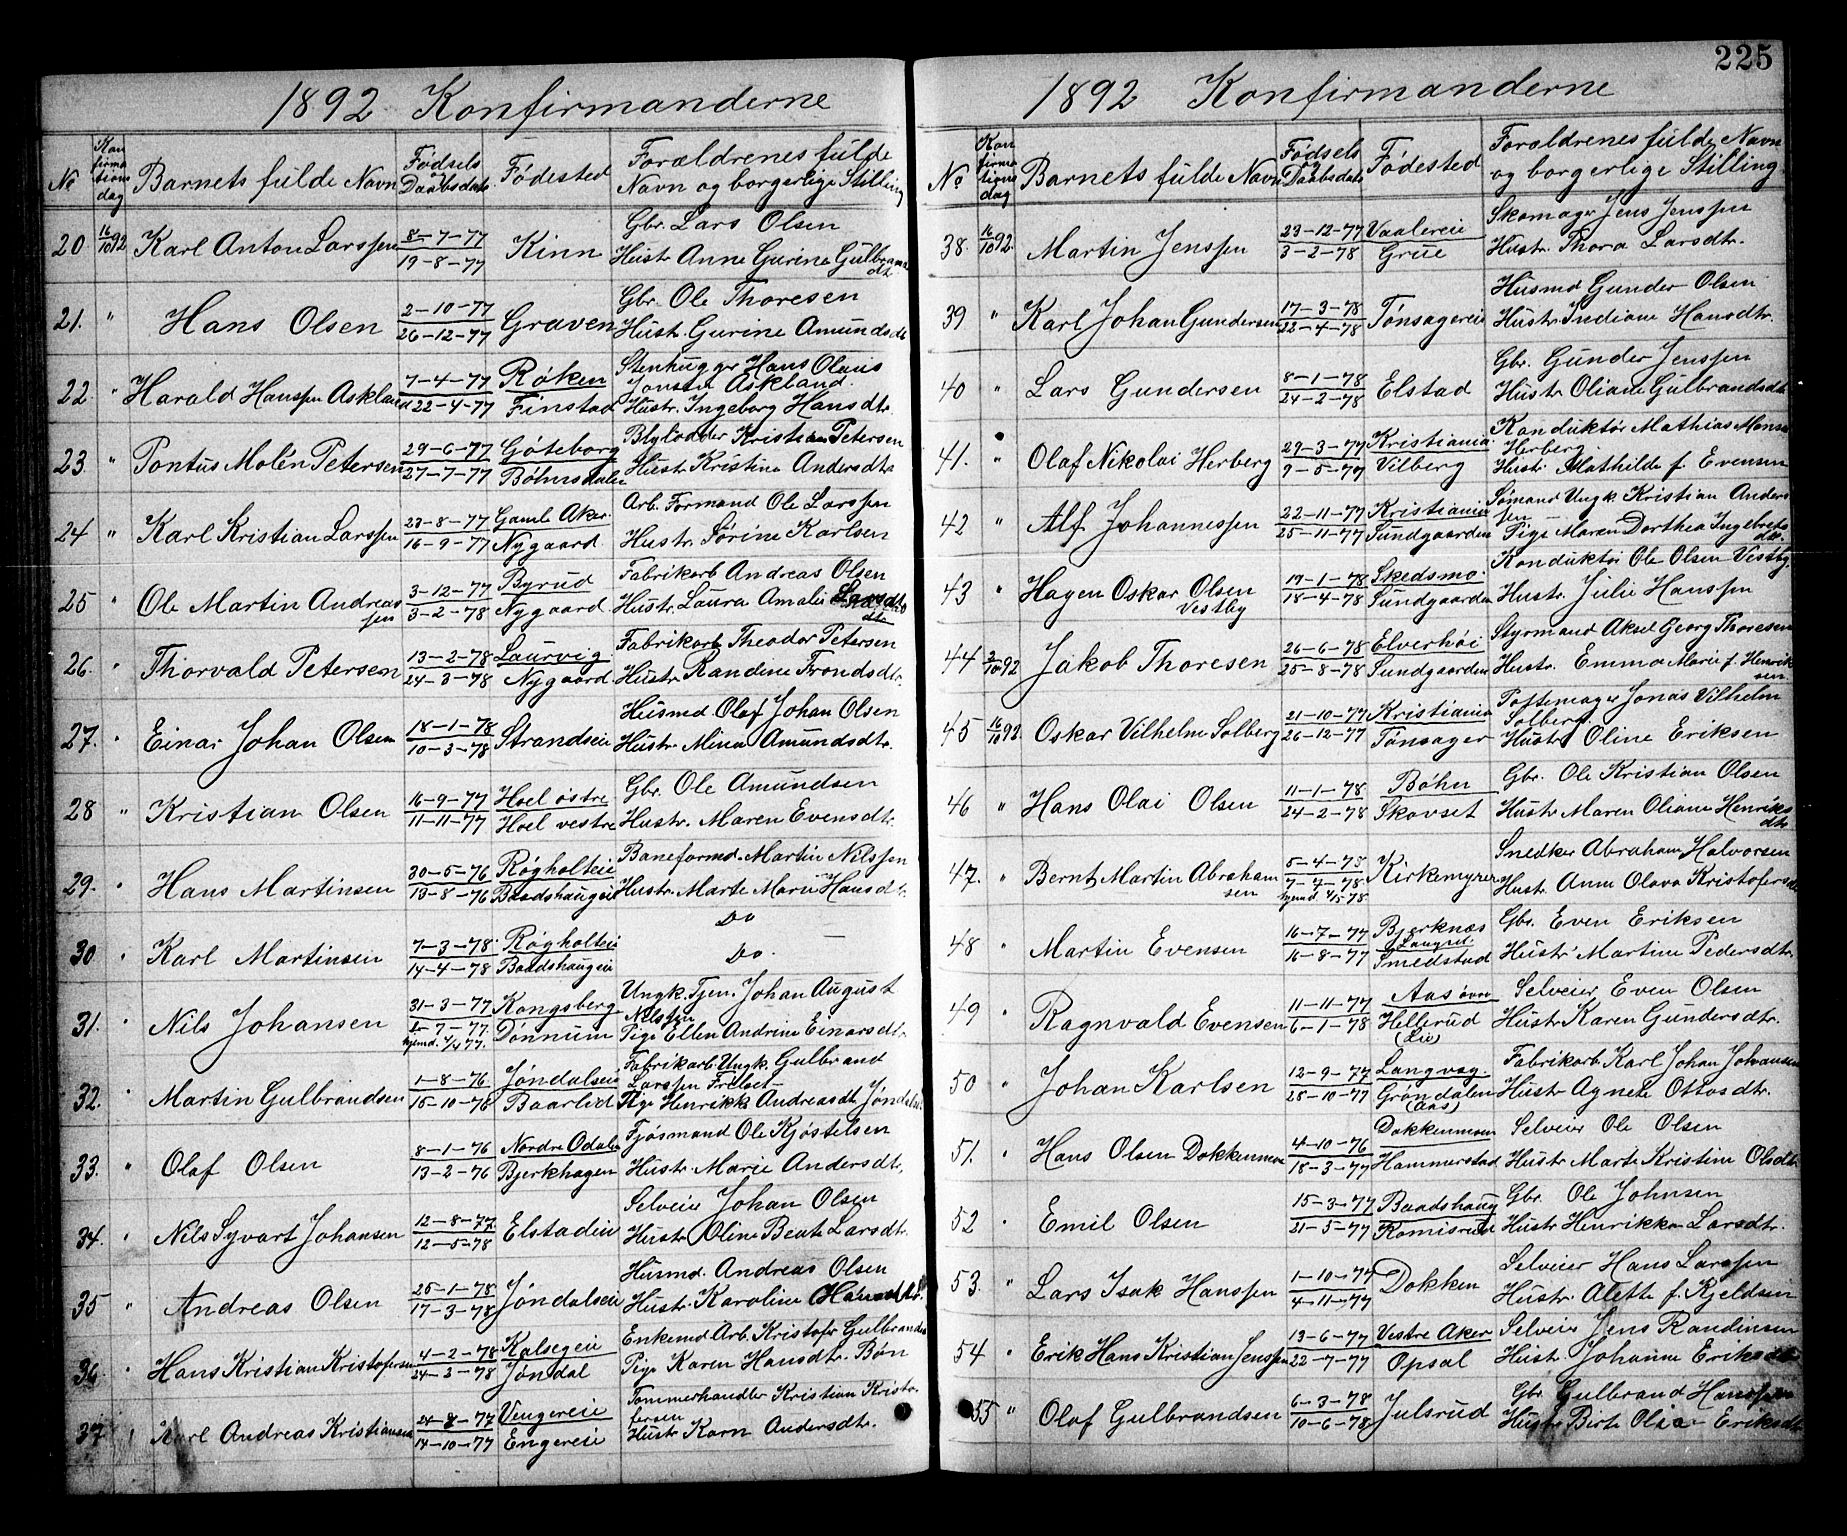 225
1892 Konfirmanderne
No Konfirmationsdag Barnets fulde Navn Fødsels og Daabsdato Fødested Forældrenes fulde Navn og borgerlige Stilling
20. 16/10 92 Karl Anton Larssen 8-7-77 19-8-77 Kinn Gbr. Lars Olsen Hustr. Anne Gurine Gulbrandsdtr.
21. " Hans Olsen 2-10-77 26-12-77 Graven Gbr. Ole Thoresen Hustr. Gurine Amundsdtr
22. " Harald Hanssen Askland 7-4-77 22-4-77 Røken Finstad Stenhugger Hans Olaus Jonsen Askland. Hustr. Ingeborg Hansdtr.
23. " Pontus Molén Petersen 29-6-77 27-7-77 Göteborg Bøhnsdalen Kristian Petersen Hustr. Kristine Andersdtr
24 " Karl Kristian Larssen 23-8-77 16-9-77 Gaml. Aker Nygaard Arb. Formand Ole Larssen Hustr. Sørine Karlsen
25 " Ole Martin Andreassen 3-12-77 3-2-78 Byrud Nygaard Fabrikarb. Andreas Olsen Hustr. Laura Amalie
26. " Thorvald Petersen 13-2-78 24-3-78 Laurvig Nygaard Fabrikarb. Theodor Petersen Hustr. Randine Trondsdtr.
27. " Einar Johan Olsen 18-1-78 10-3-78 Strandseie Husmd. Olaf Johan Olsen Hustr. Mina Amundsdtr.
28 " Kristian Olsen 16-9-77 11-11-77 Hoel østre Hoel vestre Gbr. Ole Amundsen Hustr. Maren Evensdtr.
29. " Hans Martinsen 30-5-76 13-8-76 Røgholteie Baadshaugeie Baneformd. Martin Nilssen Hustr. Marte Marie Hansdtr.
30 " Karl Martinsen 7-3-78 14-4-78 Røgholteie Baadshaugeie Do — Do.
31. " Nils Johansen 31-3-77 1-7-77. hjemd. 4/4 77. Kongsberg Dønnum Ungk. Tjen. Johan August Nilssen Pige Ellen Andrine Einarsdtr.
32. " Martin Gulbrandsen 1-8-76 15-10-76 Jøndalseie Baarlid Fabrikarb. Ungk. Gulbrand Larssen Pige Henrikke Andreasdtr.
33. " Olaf Olsen 8-1-76 13-2-76 Nordre Odalen Bjerkhagen Fjøsmand Ole Kjøstelsen Hustr. Marie Andersdtr.
34. " Nils Syvart Johansen 12-8-77 12-5-78 Elstadeie Selveier Johan Olsen Hustr. Oline Beate Larsdtr.
35 " Andreas Olsen 25-1-78 17-3-78 Jøndalseie Husmd. Andreas Olsen Hustr. Karoline
36. " Hans Kristian Kristofersen 4-2-78 24-3-78 Kalsegeie Jøndal Enkemd. Arb. Kristofer Gulbrandsen Pige Karen Hansdtr. Bøn
37. " Karl Andreas Kristiansen 24-8-77 14-10-77 Vengereie Engereie Tømmerhandler Kristian Kristofersen Hustr. Karn Andersdtr.
1892 Konfirmanderne
No Konfirmationsdag Barnets fulde Navn Fødsels og Daabsdato Fødested Forældrenes fulde Navn og borgerlige Stilling
38. 16/10 92. Martin Jenssen 23-12-77 3-2-78 Vaalereie Grue Skomager Jens Jenssen Hustr. Thora Larsdtr.
39 " Karl Johan Gundersen 17-3-78 22-4-78 Tønsagereie Husmd Gunder Olsen Hustr. Indiane Hansdtr.
40 " Lars Gundersen 8-1-78 24-2-78 Elstad Gbr. Gunder Jenssen Hustr. Oliane Gulbrandsdtr
41. " Olaf Nikolai Herberg 29-3-77 9-5-77 Kristiania. Vilberg Konduktør Mathias Herberg. Hustr. Mathilde f. Evensen
42 " Alf Johannessen 22-11-77 25-11-77 Kristiania Sundgaarden Sømand Ungk. Kristian Anderssen Pige Maren Dorthea Ingebretsdtr.
43 " Hagen Oskar Olsen Vestby 19-1-78 18-4-78 Skedsmo. Sundgaarden Konduktør Ole Olsen Vestby Hustr. Julie Hanssen
44 2/10 92 Jakob Thoresen 26-6-78 25-8-78 Elverhøi Sundgaarden Styrmand Aksel Georg Thoresen Hustr. Emma Marie f. Henriksen
45 16/10 92 Oskar Vilhelm Solberg 21-10-77 26-12-77 Kristiania Tønsager Pottemager Jonas Vilhelm Solberg. Hustr. Oline Eriksen
46 " Hans Olai Olsen 11-1-78 24-2-78 Bøhn Skovset Gbr. Ole Kristian Olsen Hustr. Maren Oliane Henriksdtr
47. " Bernt Martin Abrahamsen 5-4-78 7-4-78. hjemd. 4/5 78. Kirkemyren Snedker Abraham Halvorsen Hustr. Anne Olava Kristofersdtr
48 " Martin Evensen 16-7-77 16-8-77 Bjerknæs Langset Smedstad Gbr. Even Eriksen Hustr. Martine Pedersdtr.
49 " Ragnvald Evensen 11-11-77 6-1-78 Aas øvre Hellerud (Lie) Selveier Even Olsen Hustr. Karen Gundersdtr.
50 " Johan Karlsen 12-9-77 28-10-77 Langvag. Grøndalen (Aas) Fabrikarb. Karl Johan Johansen Hustr. Agnete Ottosdtr.
51. " Hans Olsen Dokkenmoen 4-10-76 18-3-77 Dokkenmoen Hammerstad Selveier Ole Olsen Hustr. Marte Kristine Olsdtr
52 " Emil Olsen 15-3-77 21-5-77 Baadshaug Komisrud Gbr. Ole Johnsen Hustr. Henrikka Larsdtr.
53. " Lars Isak Hanssen 1-10-77 4-11-77 Dokken Selveier Hans Larssen Hustr. Alette f. Kjeldsen
54 " Erik Hans Kristian Jenssen 13-6-77 22-7-77 Vestre Aker Opsal Selveier Jens Randinsen Hustr. Johanne Eriksdtr
55 " Olaf Gulbrandsen 6-3-78 10-6-78 Julsrud Gbr. Gulbrand Hanssen Hustr. Birte Olia Eriksdtr